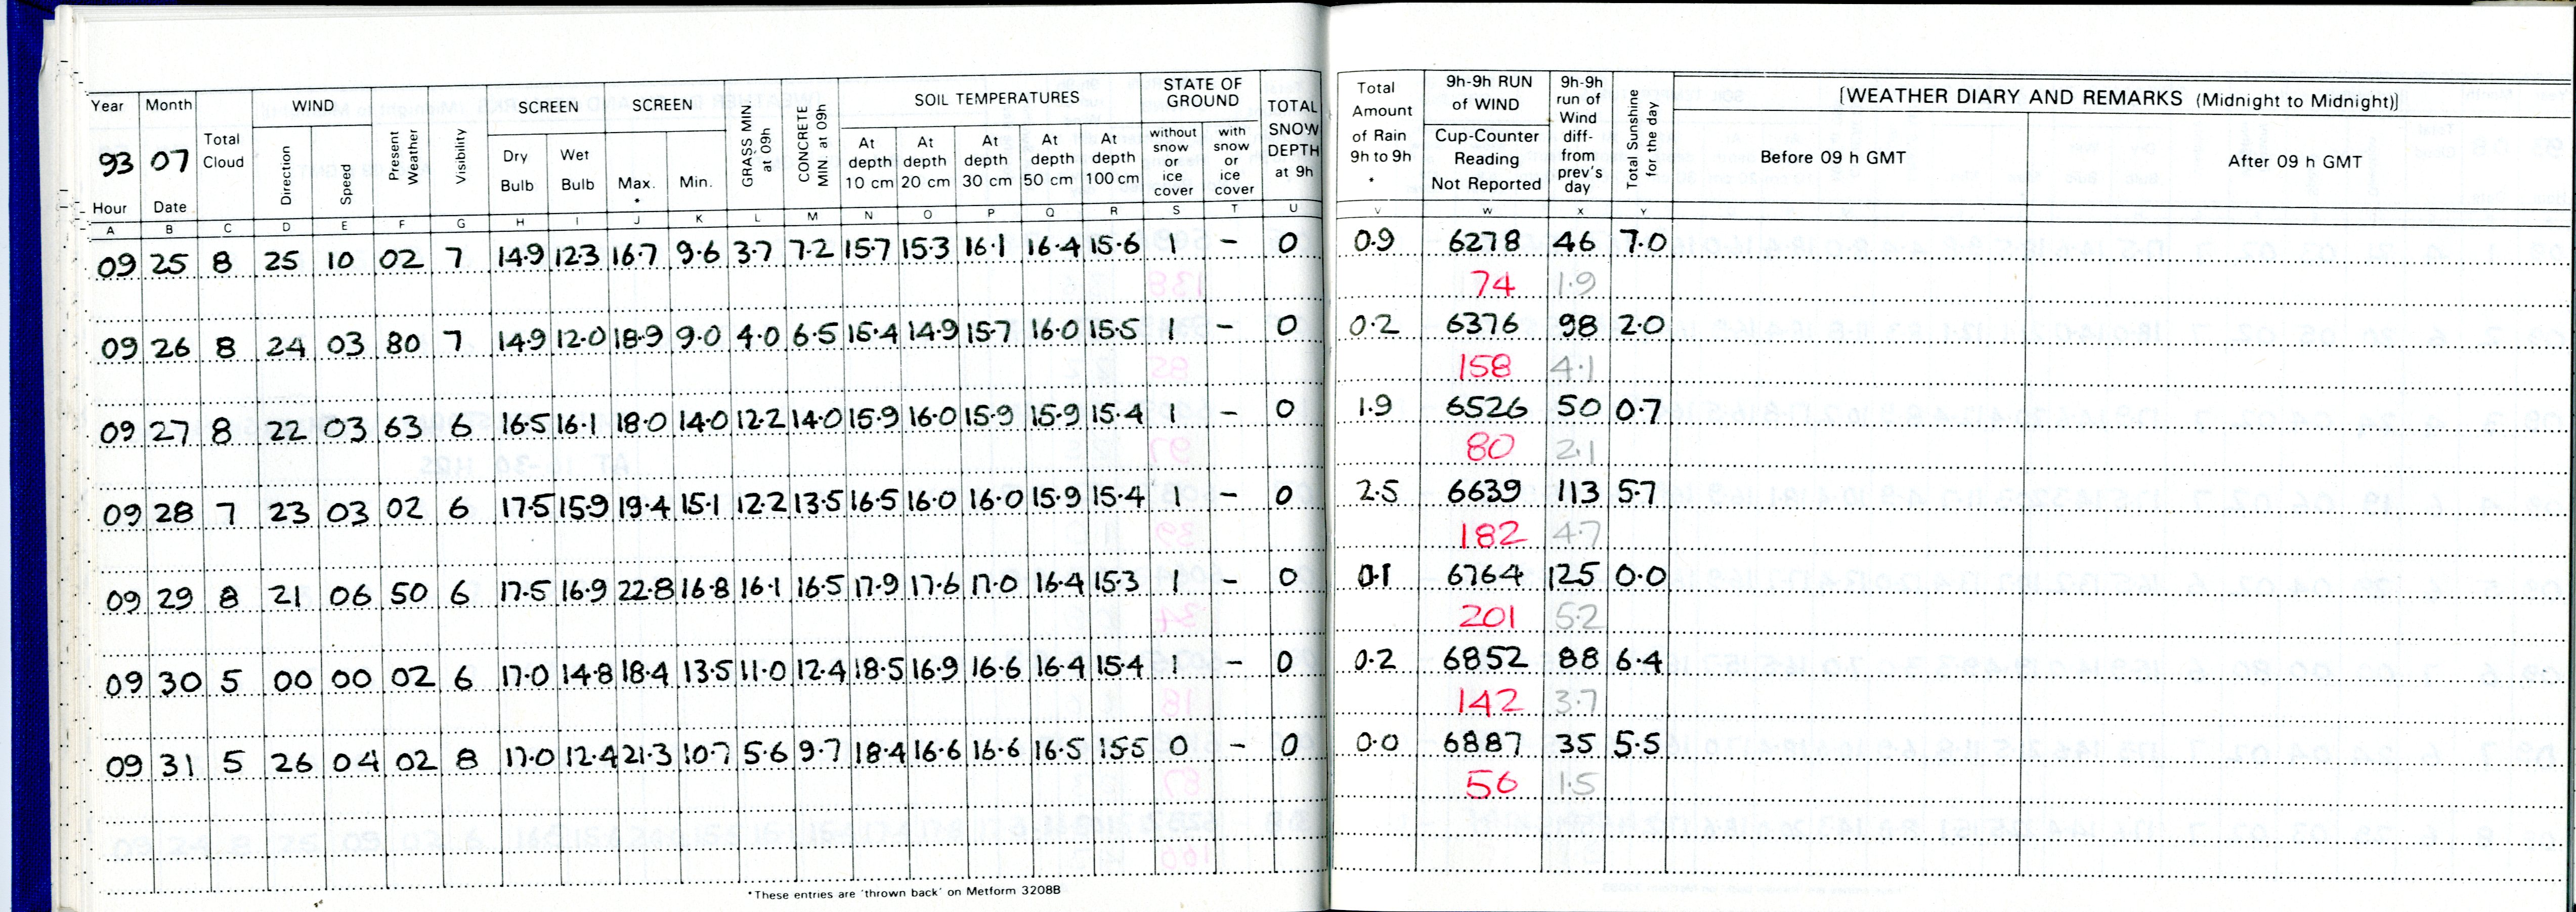 Year Month WIND SCREEN SCREEN SOIL TEMPERATURES STATE OF GROUND
93 07 Total Cloud Direction Speed Present Weather Visibility Dry Bulb Wet Bulb Max. * Min. GRASS MIN at 09h CONCRETE MIN. at 09h At depth 10 cm At depth 20 cm At depth 30 cm At depth 50 cm At depth 100 cm without snow or ice cover with snow or ice cover TOTAL SNOW DEPTH at 9h Total Amount of Rain 9h to 9h * 9h-9h RUN of WIND Cup-Counter Reading Not Reported 9h-9h run of Wind diff- from prev's day Total Sunshine for the day [WEATHER DIARY AND REMARKS (Midnight to Midnight)]
Hour Date Before 09 h GMT After 09 h GMT
A B C D E F G H I J K L M N O P Q R S T U V W X Y
09 25 8 25 10 02 7 14.9 12.3 16.7 9.6 3.7 7.2 15.7 15.3 16.1 16.4 15.6 1 – 0 0.9 6278 46 7.0
74 1.9
09 26 8 24 03 80 7 14.9 12.0 18.9 9.0 4.0 6.5 15.4 14.9 15.7 16.0 15.5 1 – 0 0.2 6376 98 2.0
158 4.1
09 27 8 22 03 63 6 16.5 16.1 18.0 14.0 12.2 14.0 15.9 16.0 15.9 15.9 15.4 1 – 0 1.9 6526 50 0.7
80 2.1
09 28 7 23 03 02 6 17.5 15.9 19.4 15.1 12.2 13.5 16.5 16.0 16.0 15.9 15.4 1 – 0 2.5 6639 113 5.7
182 4.7
09 29 8 21 06 50 6 17.5 16.9 22.8 16.8 16.1 16.5 17.9 17.6 17.0 16.4 15.3 1 – 0 0.1 6764 125 0.0
201 5.2
09 30 5 00 00 02 6 17.0 14.8 18.4 13.5 11.0 12.4 18.5 16.9 16.6 16.4 15.4 1 – 0 0.2 6852 88 6.4
142 3.7
09 31 5 26 04 02 8 17.0 12.4 21.3 10.7 5.6 9.7 18.4 16.6 16.6 16.5 15.5 0 – 0 0.0 6887 35 5.5
56 1.5
*These entries are 'thrown back' on Metform 3208B